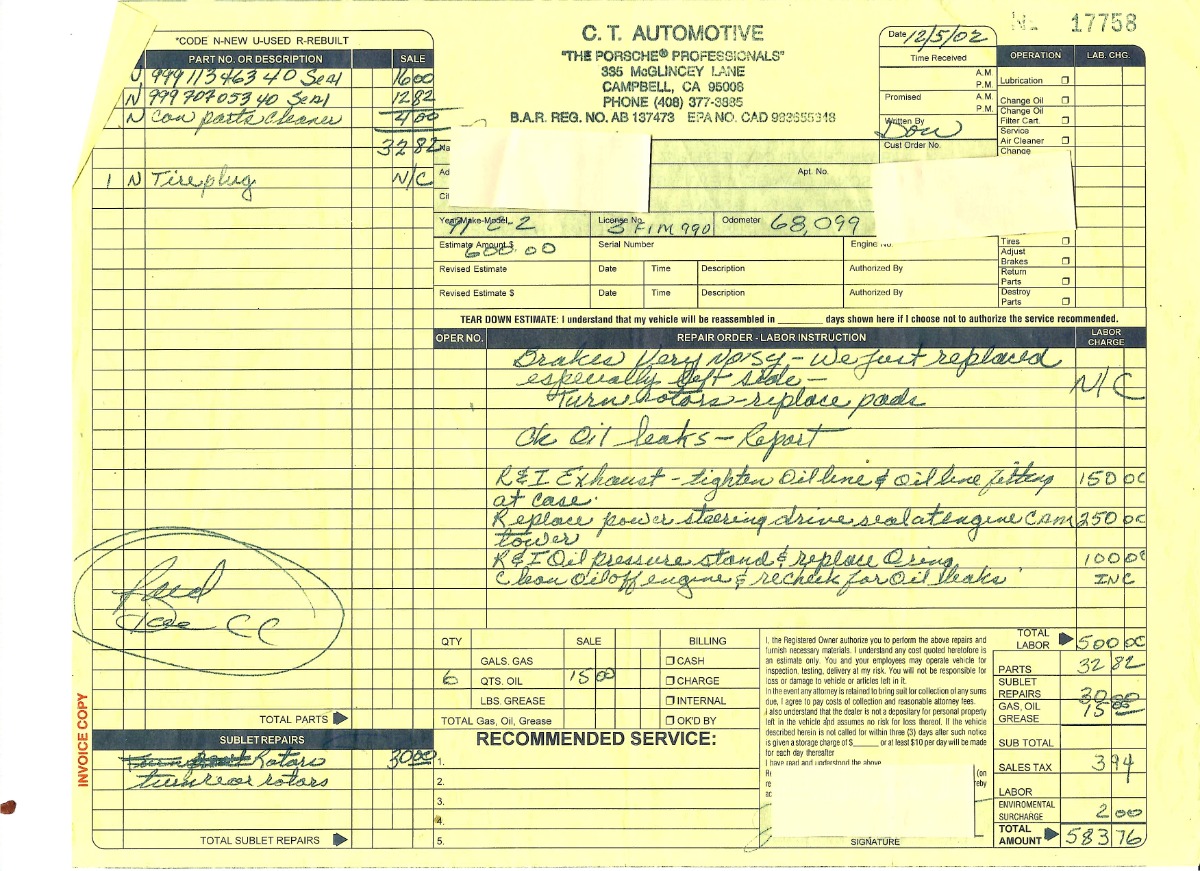 *CODE N-NEW U-USED R-REBUILT
PART NO. OR DESCRIPTION SALE
999 113 463 40 Seal 16 00
N 999 707 053 40 Seal 12 82
N Can parts cleaner 4 00
32 82
1 N Tire plug N/C
TOTAL PARTS
SUBLET REPAIRS
Rotors 30 00
turn rear rotors
TOTAL SUBLET REPAIRS
INVOICE COPY
CC
C. T. AUTOMOTIVE
"THE PORSCHE® PROFESSIONALS"
335 McGLINCEY LANE
CAMPBELL, CA 95008
PHONE (408) 377-3885
B.A.R. REG. NO. AB 137473 EPA NO. CAD 983655348
17758
Date 12/5/02
Time Received
A.M.
P.M.
Promised A.M.
P.M.
Written By
Don
Cust Order No.
Apt. No.
Year-Make-Model 91 C-2 License No. 3FIM990 Odometer 68,099
Estimate Amount $ 600.00 Serial Number Engine No.
Revised Estimate Date Time Description Authorized By
Revised Estimate $ Date Time Description Authorized By
OPERATION LAB. CHG.
Lubrication
Change Oil
Change Oil
Filter Cart.
Service
Air Cleaner
Change
Tires
Adjust
Brakes
Return
Parts
Destroy
Parts
TEAR DOWN ESTIMATE: I understand that my vehicle will be reassembled in ________ days shown here if I choose not to authorize the service recommended.
OPER NO. REPAIR ORDER - LABOR INSTRUCTION LABOR CHARGE
Brakes Very Noisy - We just replaced
especially left side - N/C
Turn rotors - replace pads
Ck Oil leaks - Report
R&I Exhaust - tighten Oil line & oil line fitting 150 00
at case.
Replace power steering drive seal at engine cam 250 00
tower
R&I Oil pressure stand & replace Oring 100 00
Clean Oil off engine & recheck for Oil leaks INC
QTY SALE BILLING
GALS. GAS CASH
6 QTS. OIL 15 00 CHARGE
LBS. GREASE INTERNAL
TOTAL Gas, Oil, Grease OK'D BY
RECOMMENDED SERVICE:
1.
2.
3.
4.
5.
I, the Registered Owner authorize you to perform the above repairs and
furnish necessary materials. I understand any cost quoted heretofore is
an estimate only. You and your employees may operate vehicle for
inspection, testing, delivery at my risk. You will not be responsible for
loss or damage to vehicle or articles left in it.
In the event any attorney is retained to bring suit for collection of any sums
due, I agree to pay costs of collection and reasonable attorney fees.
I also understand that the dealer is not a depositary for personal property
left in the vehicle and assumes no risk for loss thereof. If the vehicle
described herein is not called for within three (3) days after such notice
is given a storage charge of $______ or at least $10 per day will be made
for each day thereafter
I have read and understood the above
SIGNATURE
TOTAL LABOR 500 00
PARTS 32 82
SUBLET REPAIRS 30 00
GAS, OIL GREASE 15 00
SUB TOTAL
SALES TAX 3 94
LABOR
ENVIROMENTAL SURCHARGE 2 00
TOTAL AMOUNT 583 76